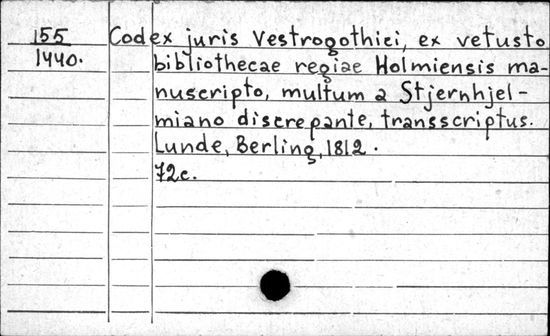 155
1440.
Codex juris Vestrogothici, ex vetusto
bibliothecae regiae Holmiensis ma-
nuscripto, multum a Stjernhjel-
miano discrepante, transscriptus.
Lunde, Berling, 1812.
72c.